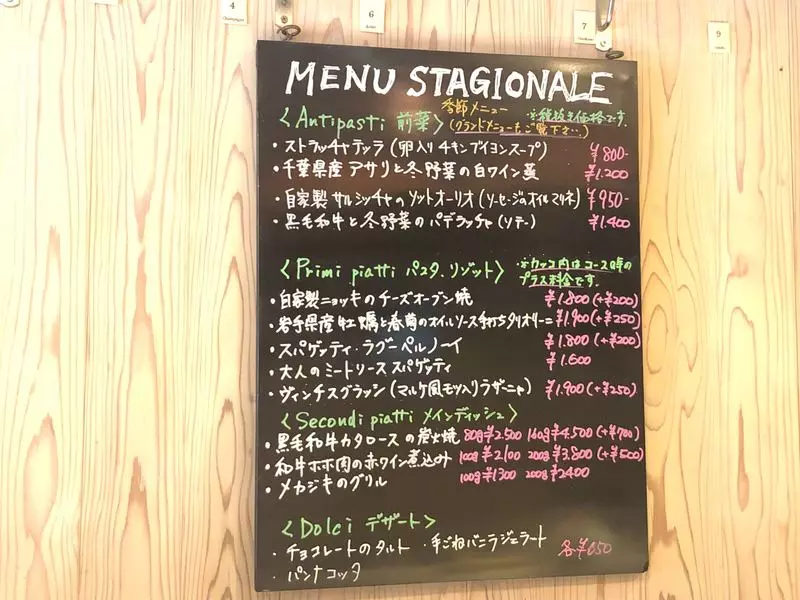 4
6
7
9
MENU STAGIONALE
季節メニュー
<Antipasti 前菜> (グランドメニューも、ご覧下さい…) ※税抜き価格です。
・ストラッチャテッラ (卵入りチキンブイヨンスープ) ¥800-
・千葉県産 アサリと冬野菜の白ワイン蒸 ¥1.200
・自家製サルシッチャのソットオーリオ (ソーセージのオイルマリネ) ¥950-
・黒毛和牛と冬野菜のパデラッチャ (ソテー) ¥1.400
<Primi piatti パスタ.リゾット> ※カッコ内はコース時の
プラス料金です。
・自家製ニョッキのチーズオーブン焼 ¥1.800 (+¥200)
・岩手県産 牡蠣と春菊のオイルソース手打ちタリオリーニ ¥1.900 (+¥250)
・スパゲッティ・ラグーペルノーイ ¥1.800 (+¥200)
・大人のミートソース スパゲッティ ¥1.600
・ヴィンチスグラッシ (マルケ風モツ入りラザーニャ) ¥1.900 (+¥250)
<Secondi piatti メインディッシュ>
・黒毛和牛カタロースの炭火焼 80g¥2.500 160g¥4.500 (+¥700)
・和牛ホホ肉の赤ワイン煮込み 100g¥2100 200g¥3.800 (+¥500)
・メカジキのグリル 100g¥1300 200g¥2400
<Dolci デザート>
・チョコレートのタルト ・手ごねバニラジェラート 各¥650
・パンナコッタ